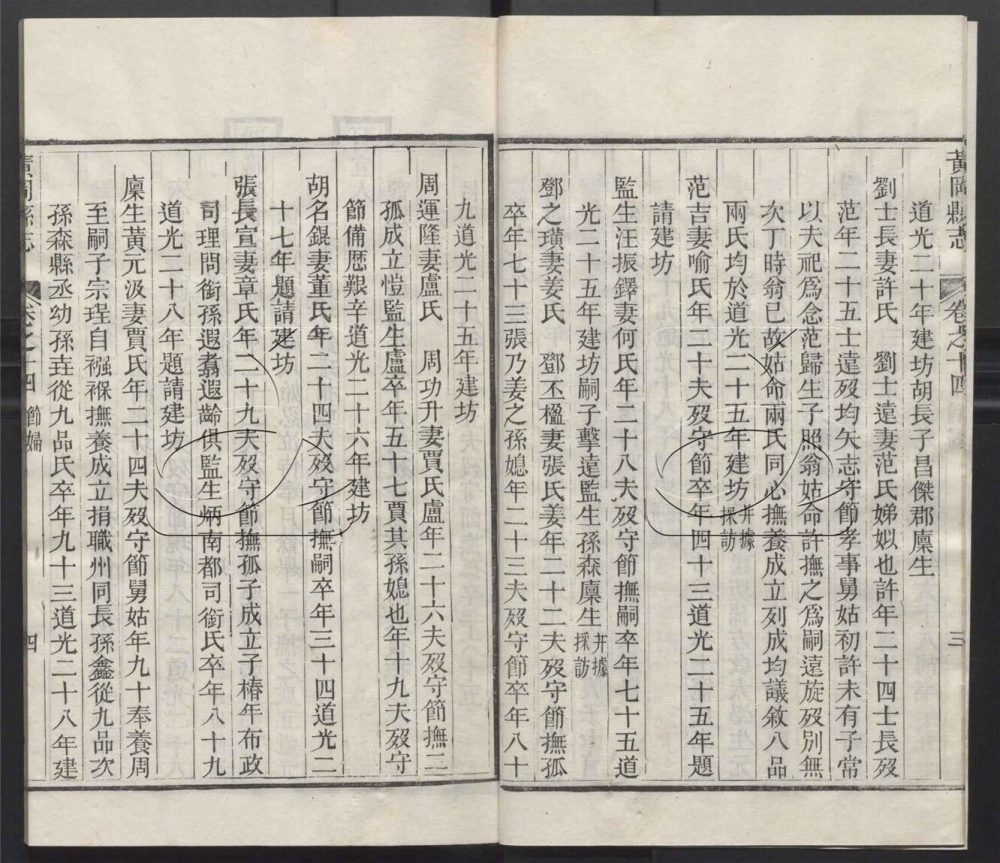 黃岡縣志
卷之十四
三
道光二十年建坊胡長子昌傑郡廩生
劉士長妻許氏　劉士遠妻范氏娣姒也許年二十四士長歿
范年二十五士遠歿均矢志守節孝事舅姑初許未有子常
以夫祀爲念范歸生子照翁姑命許撫之爲嗣遠旋歿別無
次丁時翁已故姑命兩氏同心撫養成立列成均議敘八品
兩氏均於道光二十五年建坊幷據採訪
范吉妻喻氏年二十夫歿守節卒年四十三道光二十五年題
請建坊
監生汪振鐸妻何氏年二十八夫歿守節撫嗣卒年七十五道
光二十五年建坊嗣子擊遠監生孫森廩生幷據採訪
鄧之璜妻姜氏　鄧丕楹妻張氏姜年二十二夫歿守節撫孤
卒年七十三張乃姜之孫媳年二十三夫歿守節卒年八十
九道光二十五年建坊
周運隆妻盧氏　周功升妻賈氏盧年二十六夫歿守節撫二
孤成立愷監生盧卒年五十七賈其孫媳也年十九夫歿守
節備歷艱辛道光二十六年建坊
胡名錕妻董氏年二十四夫歿守節撫嗣卒年三十四道光二
十七年題請建坊
張長宣妻章氏年二十九夫歿守節撫孤子成立子椿年布政
司理問銜孫遐翥遐齡俱監生炳南都司銜氏卒年八十九
道光二十八年題請建坊
廩生黃元汲妻賈氏年二十四夫歿守節舅姑年九十奉養周
至嗣子宗珵自襁褓撫養成立捐職州同長孫鑫從九品次
孫森縣丞幼孫垚從九品氏卒年九十三道光二十八年建
黃岡縣志
卷之十四
節婦
四